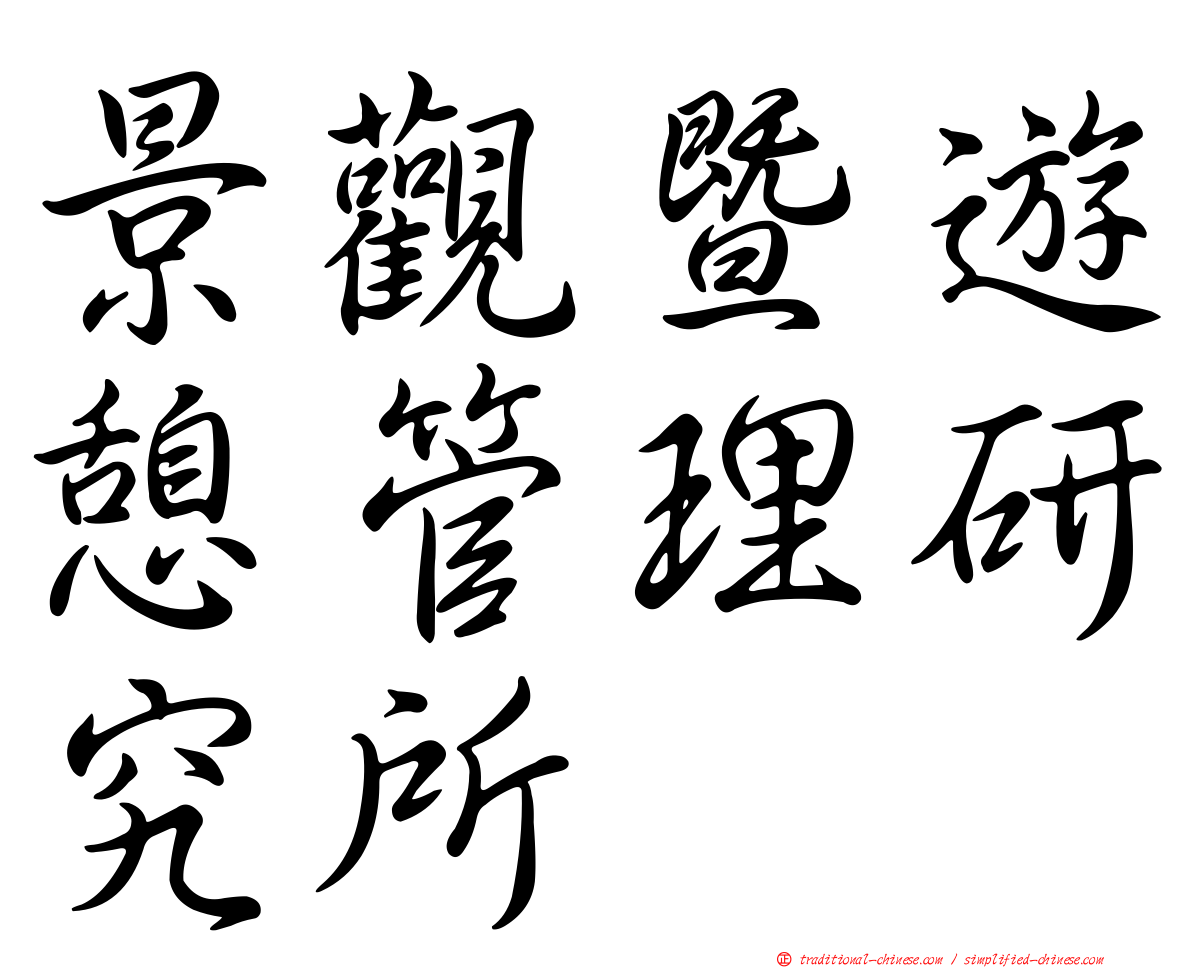 景觀暨遊
憩管理研
究所
正 traditional-chinese.com / simplified-chinese.com